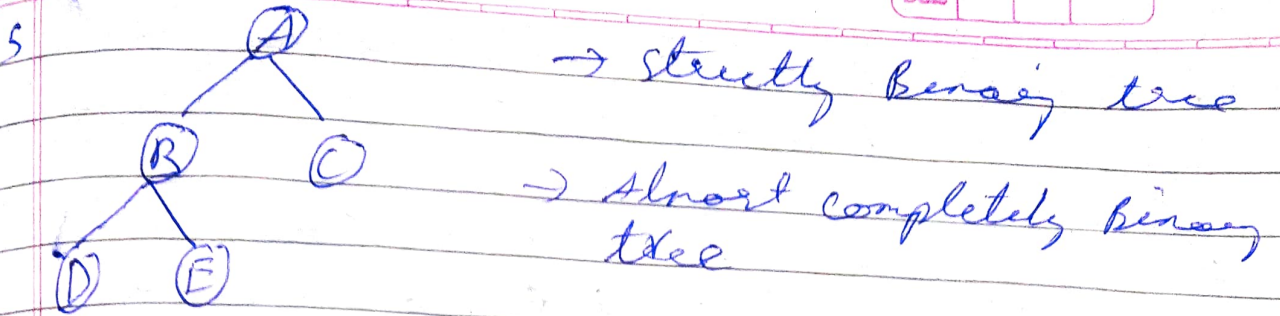 5
A
→ Strictly Binary tree
B C
→ Almost completely Binary
tree
D E